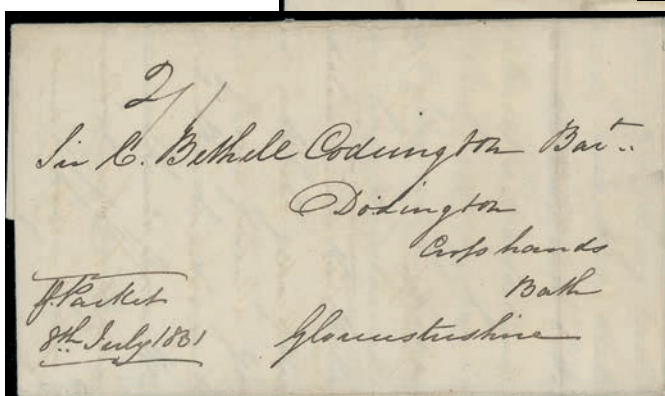 2/
Sir C. Bethell Codrington Bart.
Dodington
Cross hands
Bath
Gloucestershire
Packet
8th July 1831